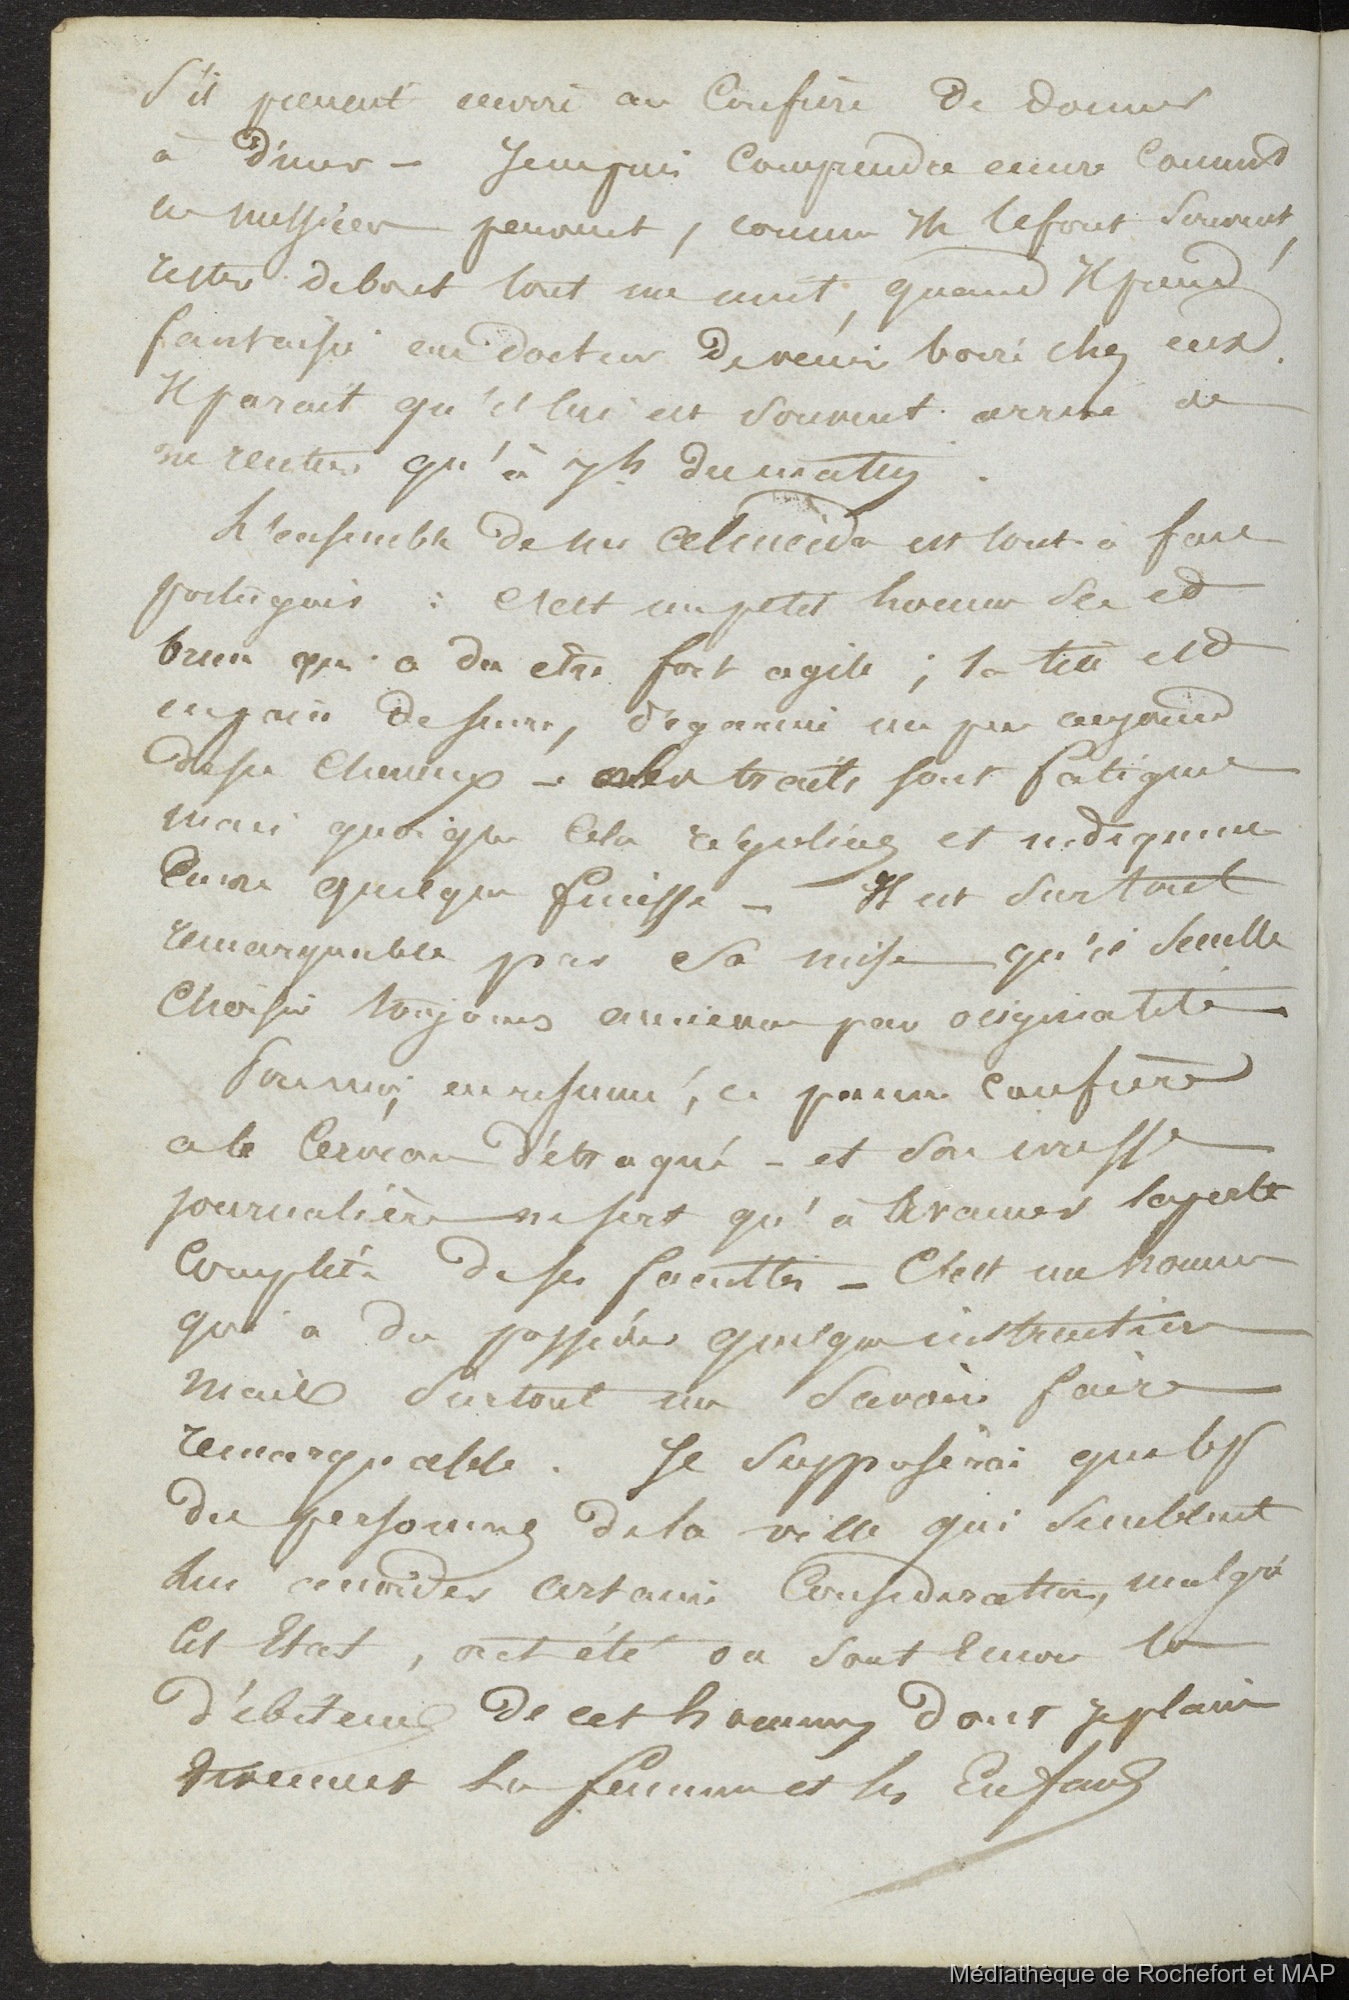 S'il prenait envie au Confrère de donner
à diner — Je ne puis comprendre encore comment
ces messieurs peuvent, comme ils le font souvent,
rester debout tout une nuit, quand Il prend
fantaisie au docteur de venir boire chez eux.
Il parait qu'il lui est souvent arrivé de
ne rentrer qu'à 7h. du matin.
L'ensemble de Mr Almeida est tout à fait
portugais : C'est un petit homme sec et
brun qui a du être fort agile ; la tête est
en pain de sucre, dégarnie un peu
de ses cheveux — les traits sont fatigués
mais quoique cela réguliers et indiquent
encore quelque finesse — Il est surtout
remarquable par sa mise qu'il semble
choisir toujours ancienne par originalité
Pour moi, en résumé, ce pauvre confrère
a le cerveau détraqué — et son ivresse
journalière ne sert qu'à avancer la perte
complète de ses facultés — C'est un homme
qui a du posséder quelque instruction
mais surtout un savoir faire
remarquable. Je supposerai que les
des personnes de la ville qui semblent
lui accorder certaine Considération, malgré
cet Etat, ont été ou sont encore les
débiteurs de cet homme dont je plains
vivement la femme et les Enfants
Médiathèque de Rochefort et MAP